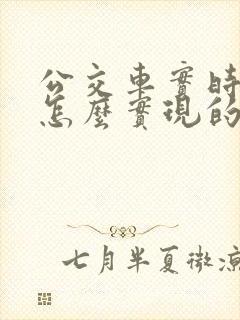 公交車實時
怎麼實現的
七月半夏微涼